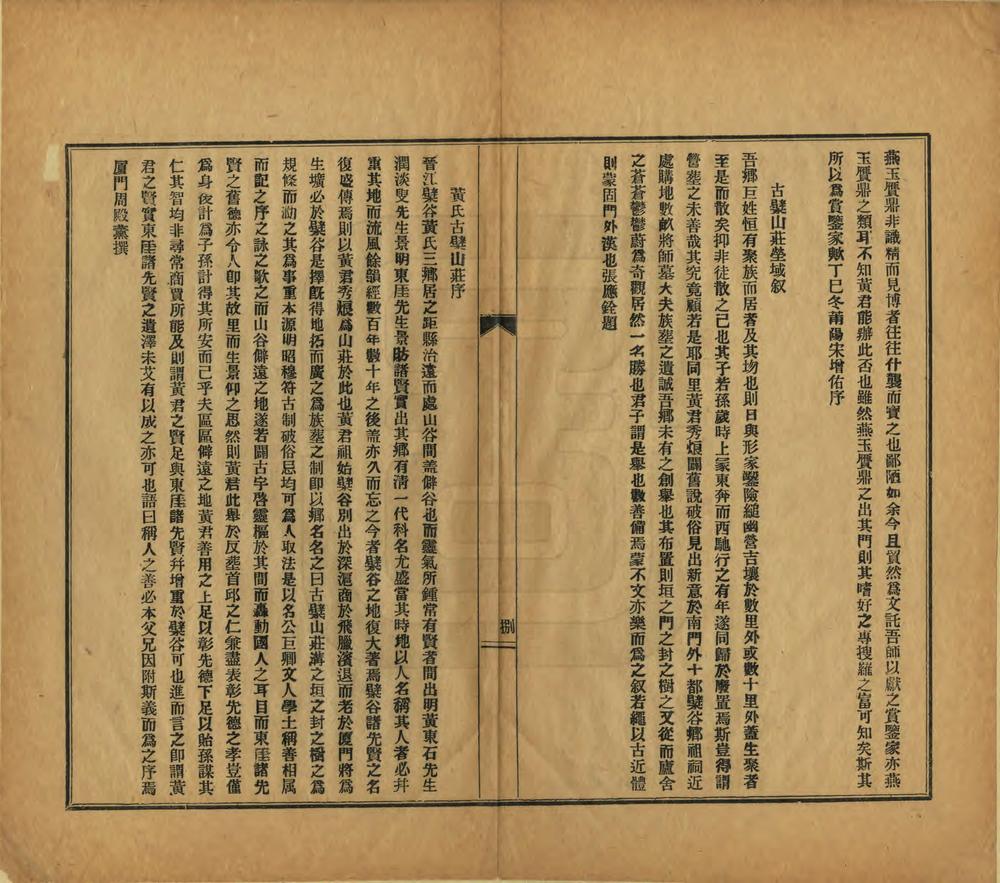 燕玉贋鼎非識精而見博者往往什襲而寶之也鄙陋如余今且貿然爲文託吾師以獻之賞鑒家亦燕
玉贋鼎之類耳不知黃君能辦此否也雖然燕玉贋鼎之出其門則其嗜好之專搜羅之富可知矣斯其
所以爲賞鑒家歟丁巳冬莆陽宋增佑序
古檗山莊塋域叙
吾鄉巨姓恒有聚族而居者及其坳也則日與形家鑿險縋幽營吉壤於數里外或數十里外蓋生聚者
至是而散矣抑非徒散之已也其子若孫歲時上冢東奔而西馳行之有年遂同歸於廢置焉斯豈得謂
營塟之未善哉其究竟顧若是耶同里黃君秀烺闢舊說破俗見出新意於南門外十都檗谷鄉祖祠近
處購地數畝將師墓大夫族塟之遺誠吾鄉未有之創舉也其布置則垣之門之封之樹之又從而廬舍
之蒼蒼鬱鬱蔚爲奇觀居然一名勝也君子謂是舉也數善備焉蒙不文亦樂而爲之叙若繩以古近體
則蒙固門外漢也張應銓題
黃氏古檗山莊序
晉江檗谷黃氏三鄉居之距縣治遠而處山谷間蓋僻谷也而靈氣所鍾常有賢者間出明黃東石先生
潤淡叟先生景明東厓先生景昉諸賢實出其鄉有淸一代科名尤盛當其時地以人名稱其人者必幷
重其地而流風餘韻經數百年數十年之後蓋亦久而忘之今者檗谷之地復大著焉檗谷諸先賢之名
復盛傳焉則以黃君秀烺爲山莊於此也黃君祖始檗谷別出於深滬商於飛臘濱退而老於厦門將爲
生壙必於檗谷是擇旣得地拓而廣之爲族塟之制卽以鄉名名之曰古檗山莊溝之垣之封之樹之爲
規條而泐之其爲事重本源明昭穆符古制破俗忌均可爲人取法是以名公巨卿文人學士稱善相属
而記之序之詠之歌之而山谷僻遠之地遂若闢古宇啓靈樞於其間而轟動國人之耳目而東厓諸先
賢之舊德亦令人卽其故里而生景仰之思然則黃君此舉於反塟首邱之仁兼盡表彰先德之孝豈僅
爲身後計爲子孫計得其所安而已乎夫區區僻遠之地黃君善用之上足以彰先德下足以貽孫謀其
仁其智均非尋常商賈所能及則謂黃君之賢足與東厓諸先賢幷增重於檗谷可也進而言之卽謂黃
君之賢實東厓諸先賢之遺澤未艾有以成之亦可也語曰稱人之善必本父兄因附斯義而爲之序焉
厦門周殿薰撰
捌